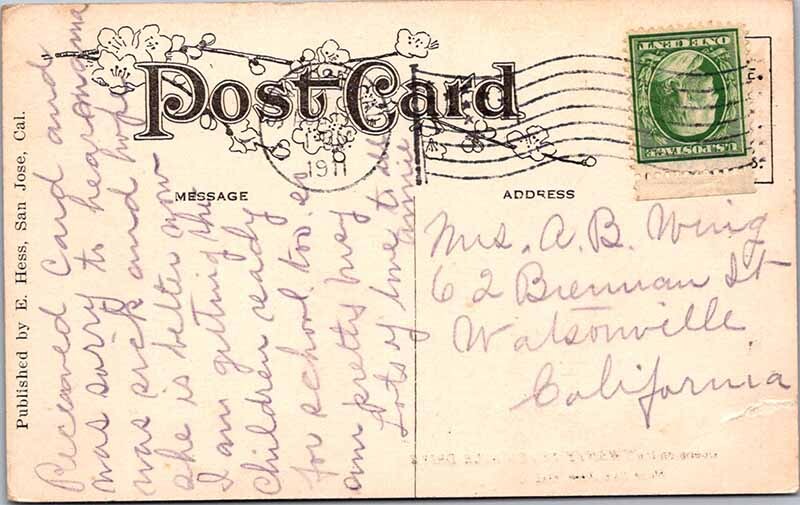 Post Card
MESSAGE
ADDRESS
Published by E. Hess, San Jose, Cal.
1911
U.S. POSTAGE
ONE CENT
Received Card and
was sorry to hear mama
was sick and hope
she is better now
I am getting the
children ready
for school too so
am pretty busy
Lots of love to all
Annie
Mrs. A. B. Wing
62 Brennan St
Watsonville
California